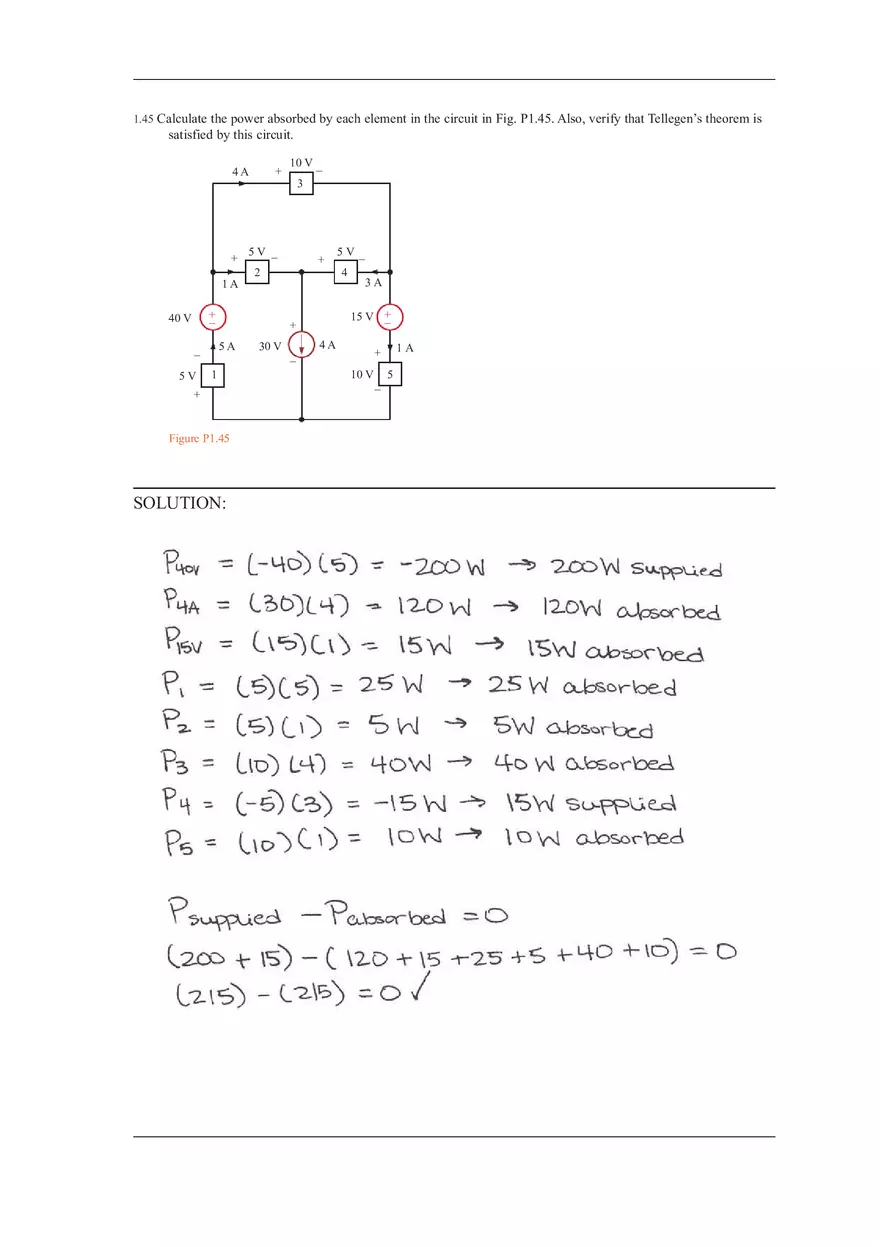 1.45 Calculate the power absorbed by each element in the circuit in Fig. P1.45. Also, verify that Tellegen's theorem is
satisfied by this circuit.
10 V
4 A + –
3
5 V 5 V
+ – + –
2 4
1 A 3 A
40 V + – 15 V + –
+
5 A 30 V 4 A + 1 A
– –
5 V 1 10 V 5
+ –
Figure P1.45
SOLUTION:
P40V = (-40)(5) = -200 W → 200W supplied
P4A = (30)(4) = 120 W → 120W absorbed
P15V = (15)(1) = 15W → 15W absorbed
P1 = (5)(5) = 25 W → 25 W absorbed
P2 = (5)(1) = 5 W → 5W absorbed
P3 = (10)(4) = 40W → 40 W absorbed
P4 = (-5)(3) = -15 W → 15W supplied
P5 = (10)(1) = 10W → 10W absorbed
Psupplied – Pabsorbed = 0
(200 + 15) – (120 + 15 + 25 + 5 + 40 + 10) = 0
(215) – (215) = 0 ✓